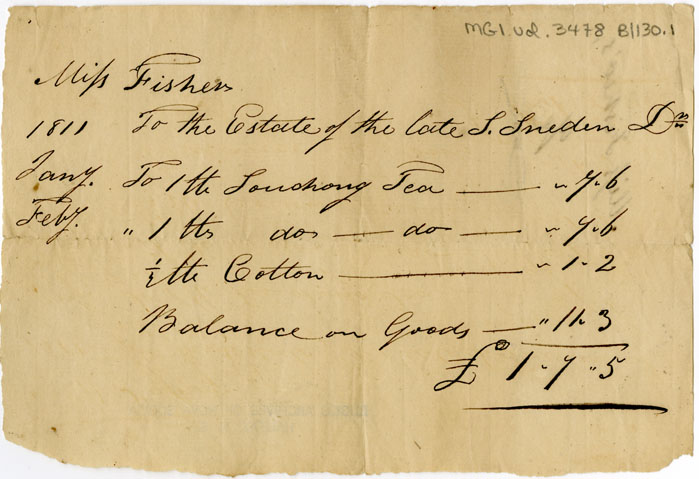 MG1 vol. 3478 B/130.1
Miss Fisher
1811 To the Estate of the late S. Sneden Dr
Jany. To 1 lb Souchong Tea — " 7 " 6
Feby. " 1 lb do — do — " 7 " 6
½ lb Cotton — " 1 " 2
Balance on Goods — " 11 " 3
£ 1 " 7 " 5